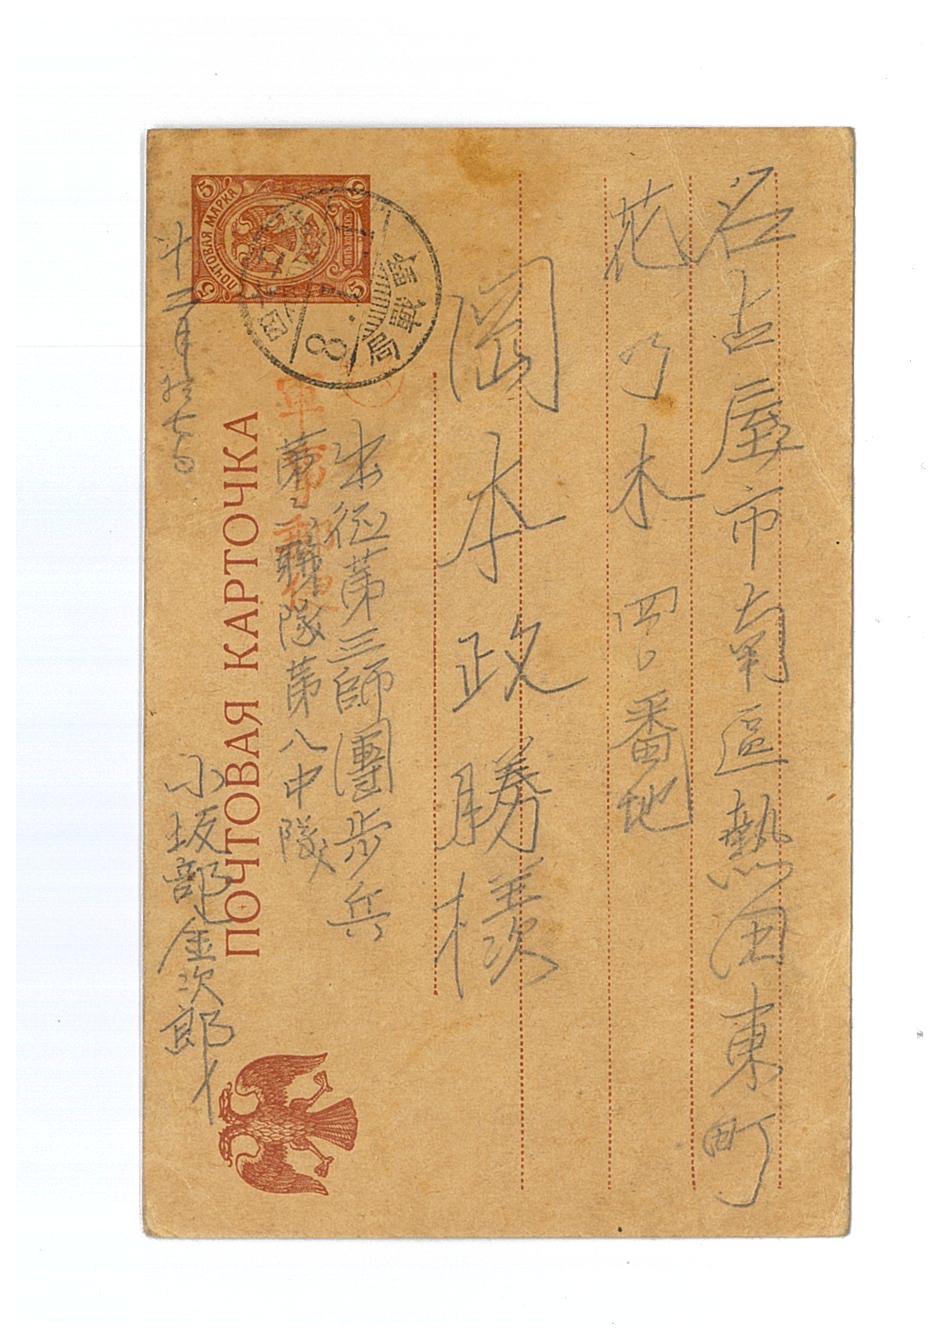 名古屋市南區熱田東町
花ノ木四〇番地
岡本政勝様
出征第三師團歩兵
第 聯隊第八中隊
小坂部金次郎
十二月拾七日
軍事郵便
ПОЧТОВАЯ КАРТОЧКА
ПОЧТОВАЯ МАРКА
5
5
5
野戰局
8